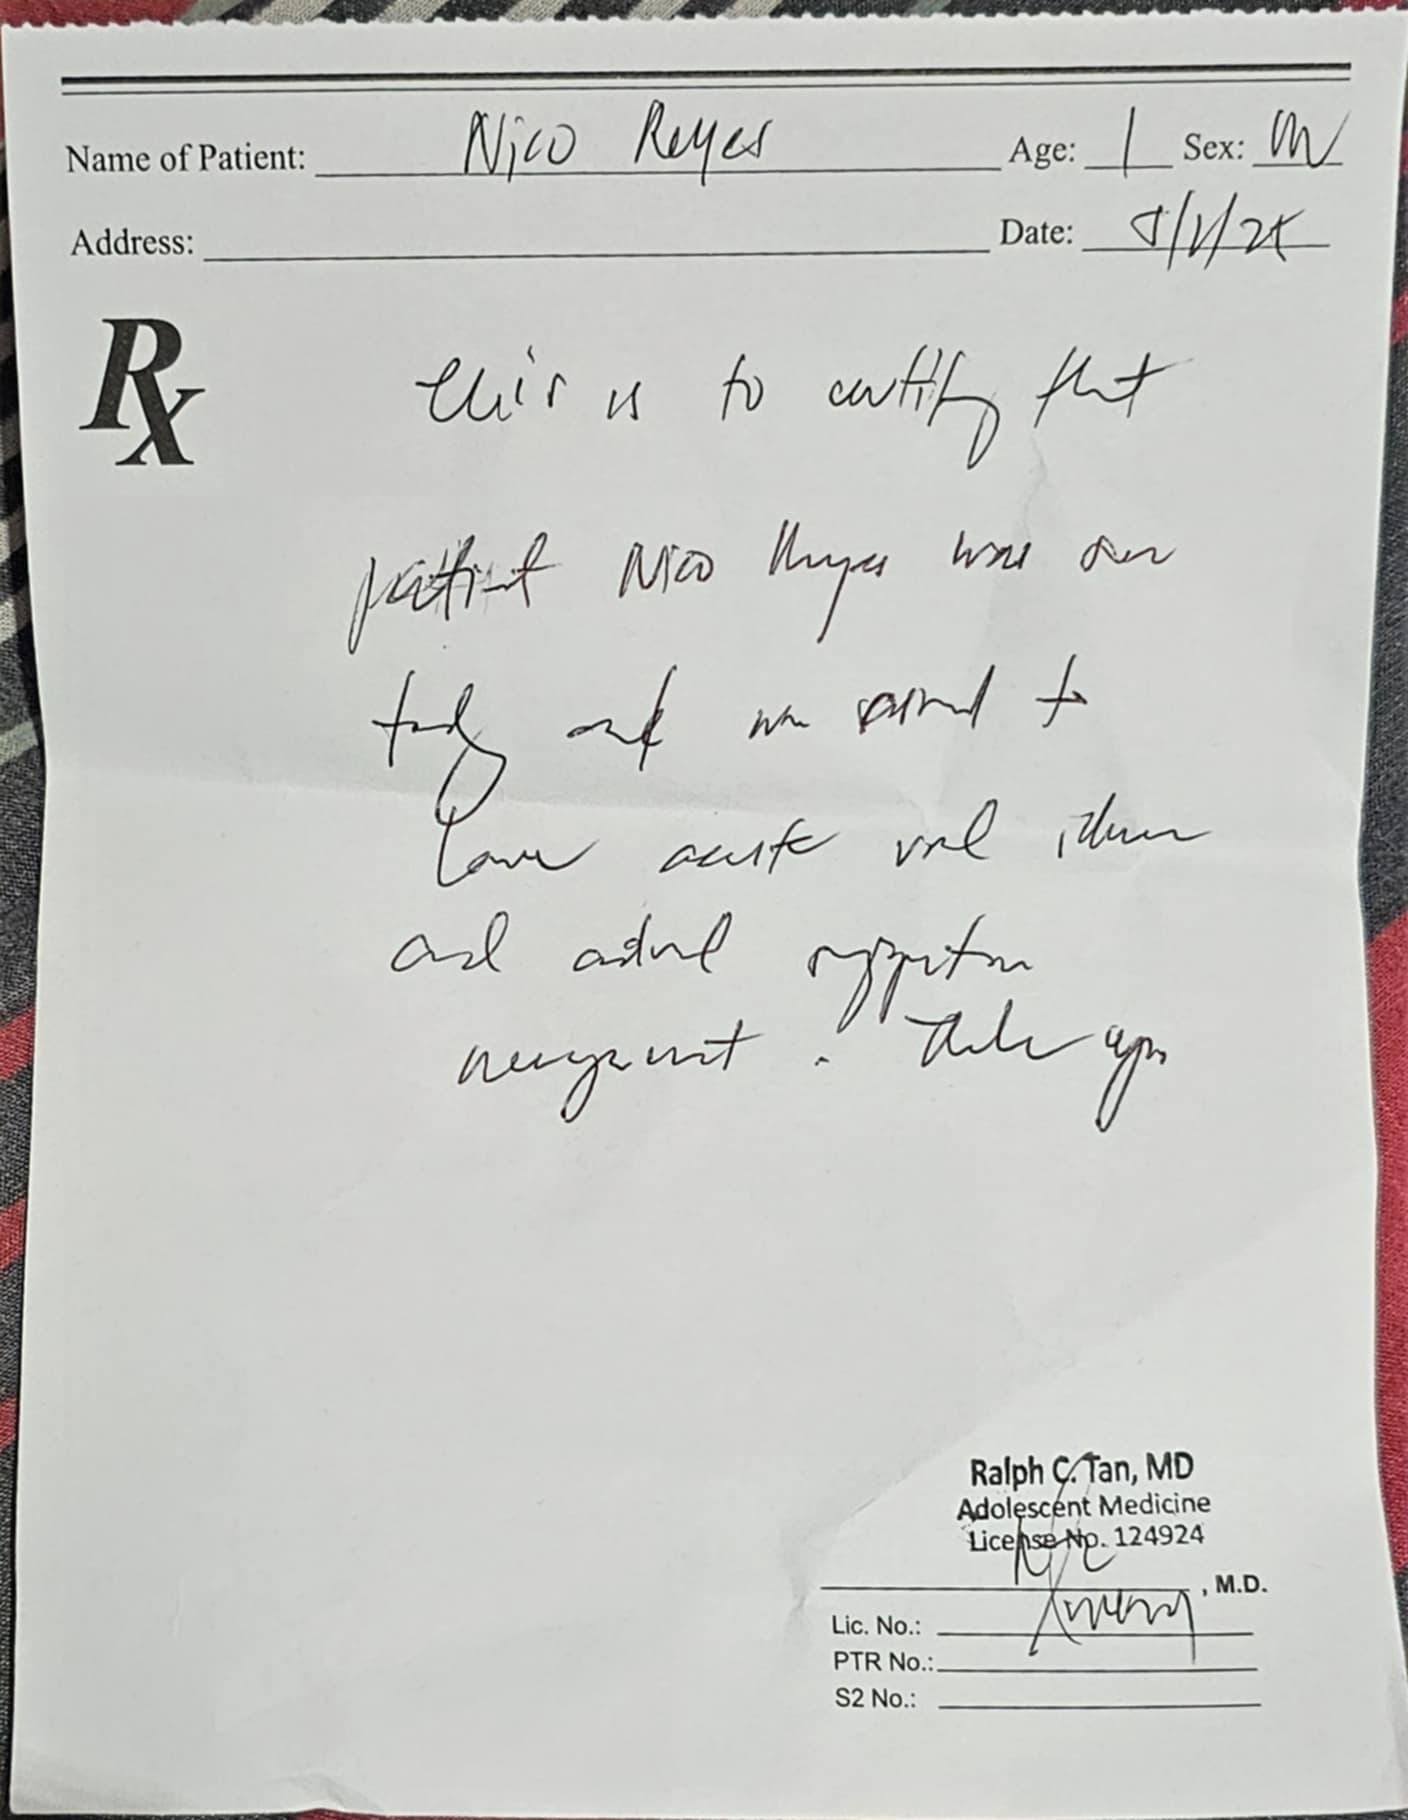 Name of Patient: Nico Reyes Age: 1 Sex: M
Address: Date:
Rx
This is to certify that
patient Nico Reyes was seen
today and was assessed to
have acute viral illness
and advised symptom
management. Thank you
Ralph C. Tan, MD
Adolescent Medicine
License No. 124924
, M.D.
Lic. No.:
PTR No.:
S2 No.: